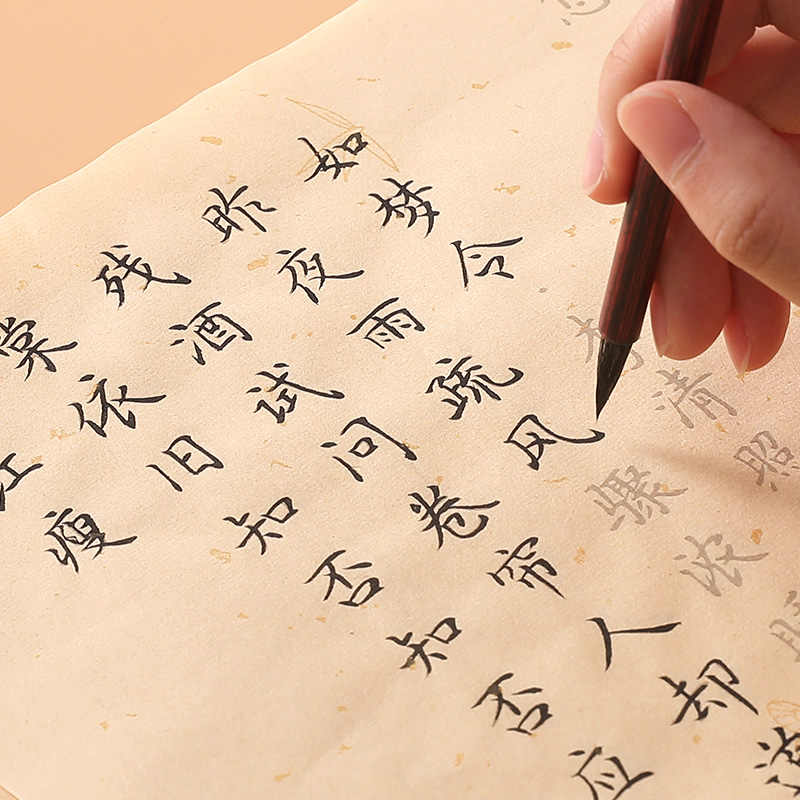 如梦令李清照
昨夜雨疏风骤浓
残酒试问卷帘人却道
棠依旧知否知否应
瘦